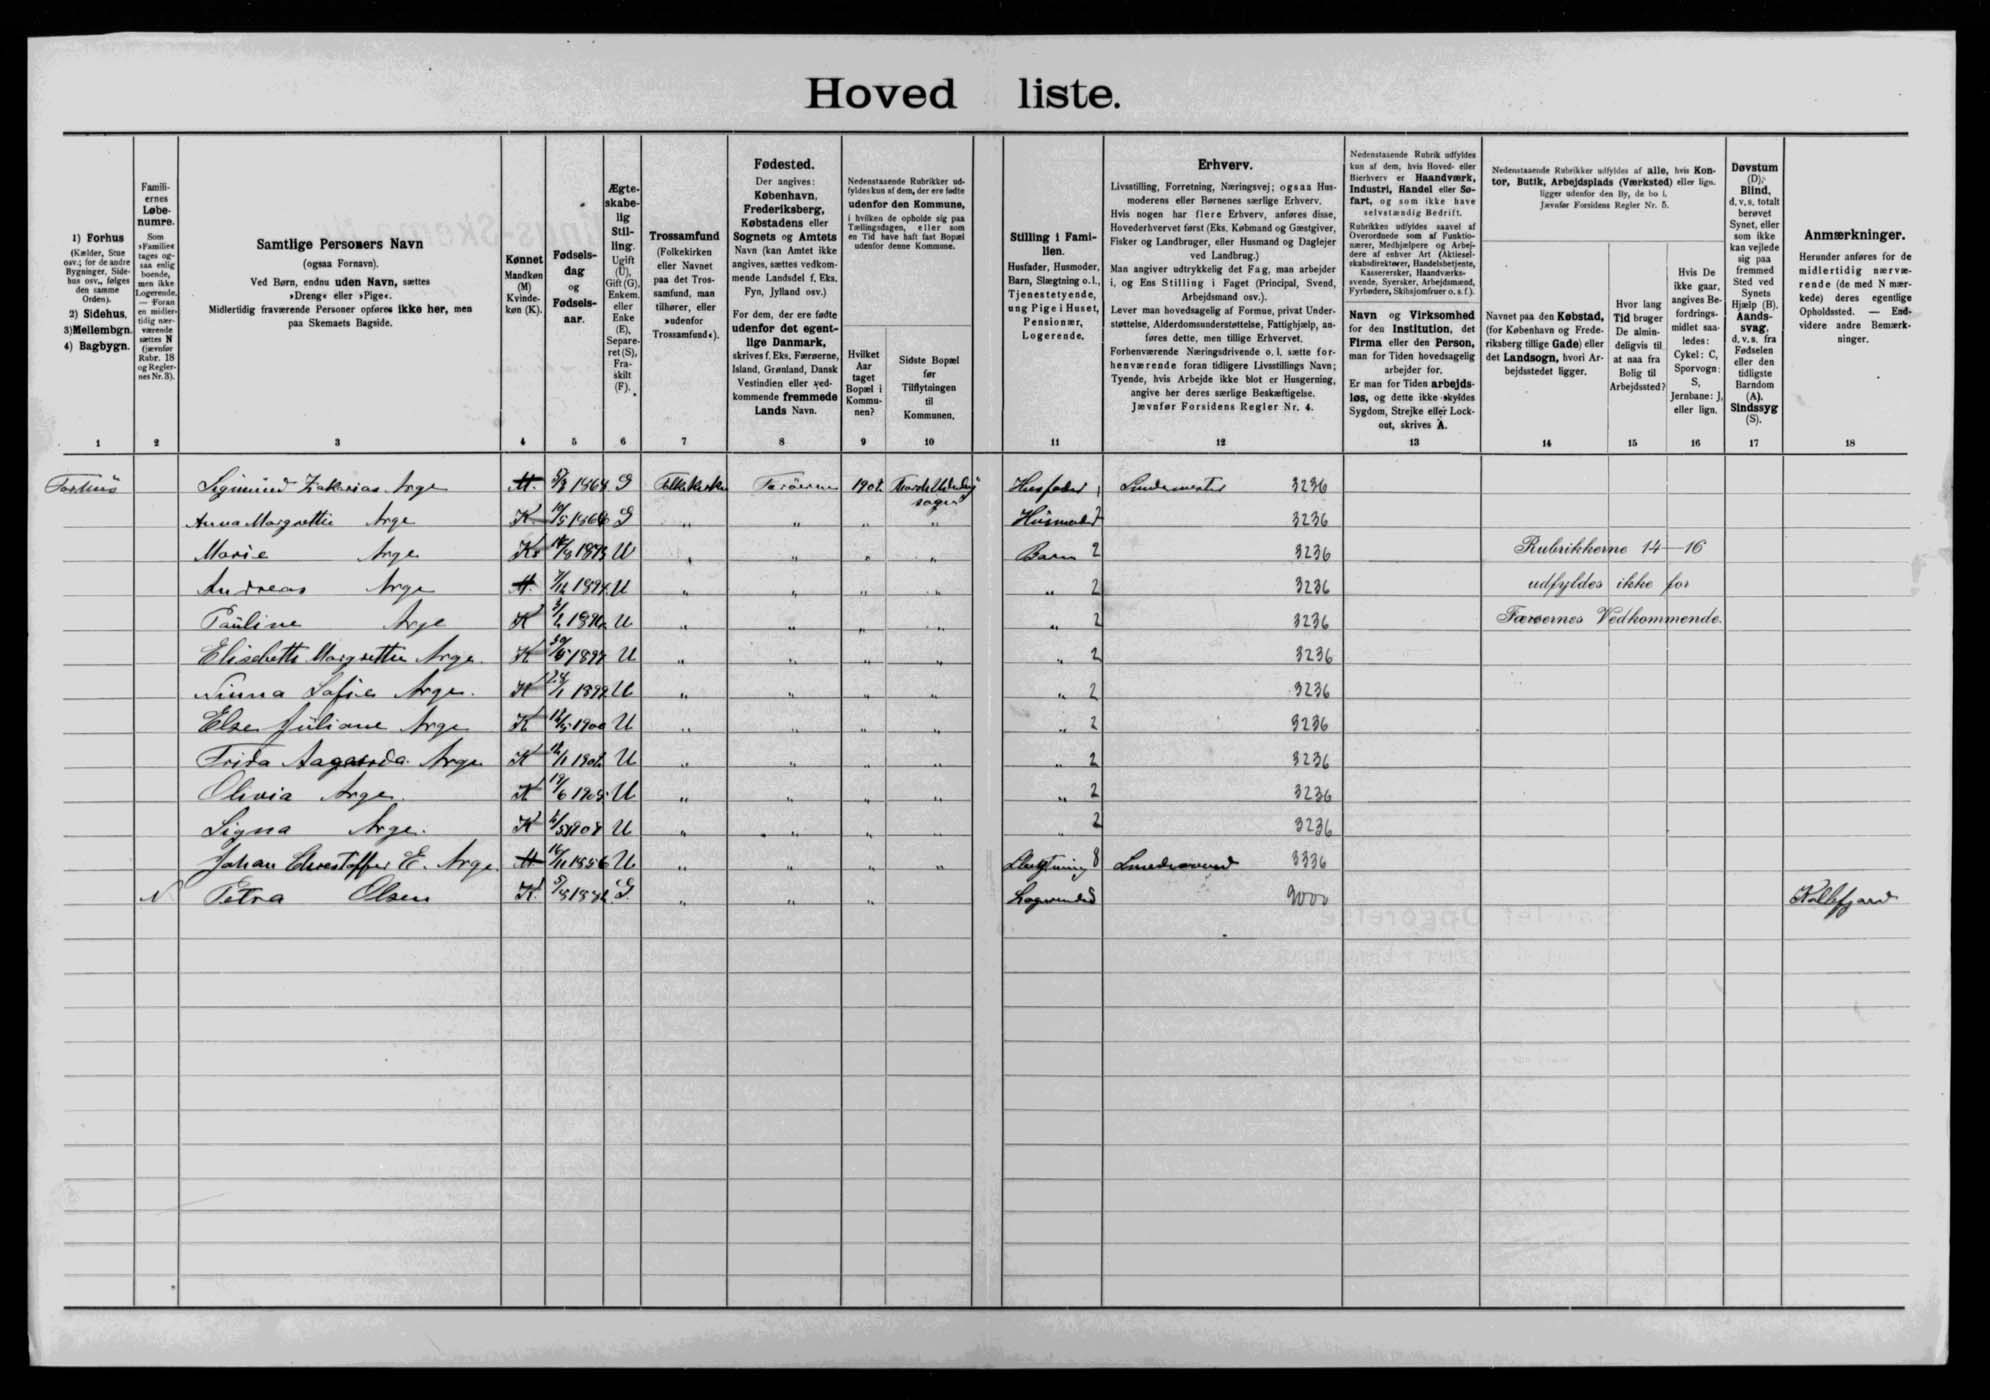 Hoved liste.
1) Forhus
(Kælder, Stue
osv.; for de andre
Bygninger, Side-
hus osv., følges
den samme
Orden).
2) Sidehus,
3) Mellembgn.
4) Bagbygn.
Famili-
ernes
Løbe-
numre.
Som
»Familie«
tages og-
saa enlig
boende,
men ikke
Logerende.
— Foran
en midler-
tidig nær-
værende
sættes N
(jævnfør
Rubr. 18
og Regler-
nes Nr. 3).
Samtlige Personers Navn
(ogsaa Fornavn).
Ved Børn, endnu uden Navn, sættes
»Dreng« eller »Pige«.
Midlertidig fraværende Personer opføres ikke her, men
paa Skemaets Bagside.
Kønnet
Mandkøn
(M)
Kvinde-
køn (K).
Fødsels-
dag
og
Fødsels-
aar.
Ægte-
skabe-
lig
Stil-
ling.
Ugift
(U),
Gift (G),
Enkem.
eller
Enke
(E),
Separe-
ret (S),
Fra-
skilt
(F).
Trossamfund
(Folkekirken
eller Navnet
paa det Tros-
samfund, man
tilhører, eller
»udenfor
Trossamfund«).
Fødested.
Der angives:
København,
Frederiksberg,
Købstadens eller
Sognets og Amtets
Navn (kan Amtet ikke
angives, sættes vedkom-
mende Landsdel f. Eks.
Fyn, Jylland osv.)
For dem, der ere fødte
udenfor det egent-
lige Danmark,
skrives f. Eks. Færøerne,
Island, Grønland, Dansk
Vestindien eller ved-
kommende fremmede
Lands Navn.
Nedenstaaende Rubrikker ud-
fyldes kun af dem, der ere fødte
udenfor den Kommune,
i hvilken de opholde sig paa
Tællingsdagen, eller som
en Tid have haft fast Bopæl
udenfor denne Kommune.
Hvilket
Aar
taget
Bopæl i
Kommu-
nen?
Sidste Bopæl
før
Tilflytningen
til
Kommunen.
Stilling i Fami-
lien.
Husfader, Husmoder,
Barn, Slægtning o. l.,
Tjenestetyende,
ung Pige i Huset,
Pensionær,
Logerende.
Erhverv.
Livsstilling, Forretning, Næringsvej; ogsaa Hus-
moderens eller Børnenes særlige Erhverv.
Hvis nogen har flere Erhverv, anføres disse,
Hovederhvervet først (Eks. Købmand og Gæstgiver,
Fisker og Landbruger, eller Husmand og Daglejer
ved Landbrug.)
Man angiver udtrykkelig det Fag, man arbejder
i, og Ens Stilling i Faget (Principal, Svend,
Arbejdsmand osv.).
Lever man hovedsagelig af Formue, privat Under-
støttelse, Alderdomsunderstøttelse, Fattighjælp, an-
føres dette, men tillige Erhvervet.
Forhenværende Næringsdrivende o. l. sætte for-
henværende foran tidligere Livsstillings Navn;
Tyende, hvis Arbejde ikke blot er Husgerning,
angive her deres særlige Beskæftigelse.
Jævnfør Forsidens Regler Nr. 4.
Nedenstaaende Rubrik udfyldes
kun af dem, hvis Hoved- eller
Bierhverv er Haandværk,
Industri, Handel eller Sø-
fart, og som ikke have
selvstændig Bedrift.
Rubrikkes udfyldes saavel af
Overordnede som af Funktio-
nærer, Medhjælpere og Arbej-
dere af enhver Art (Aktiesel-
skabsdirektører, Handelsbetjente,
Kasserersker, Haandværks-
svende, Syersker, Arbejdsmænd,
Fyrbødere, Skibsjomfruer o. s. f.).
Navn og Virksomhed
for den Institution, det
Firma eller den Person,
man for Tiden hovedsagelig
arbejder for.
Er man for Tiden arbejds-
løs, og dette ikke skyldes
Sygdom, Strejke eller Lock-
out, skrives A.
Nedenstaaende Rubrikker udfyldes af alle, hvis Kon-
tor, Butik, Arbejdsplads (Værksted) eller lign.
ligger udenfor den By, de bo i.
Jævnfør Forsidens Regler Nr. 5.
Navnet paa den Købstad,
(for København og Frede-
riksberg tillige Gade) eller
det Landsogn, hvori Ar-
bejdsstedet ligger.
Hvor lang
Tid bruger
De almin-
deligvis til
at naa fra
Bolig til
Arbejdssted?
Hvis De
ikke gaar,
angives Be-
fordrings-
midlet saa-
ledes:
Cykel: C,
Sporvogn:
S,
Jernbane: J,
eller lign.
Døvstum
(D);
Blind,
d. v. s. totalt
berøvet
Synet, eller
som ikke
kan vejlede
sig paa
fremmed
Sted ved
Synets
Hjælp (B).
Aands-
svag,
d. v. s. fra
Fødselen
eller den
tidligste
Barndom
(A).
Sindssyg
(S).
Anmærkninger.
Herunder anføres for de
midlertidig nærvæ-
rende (de med N mær-
kede) deres egentlige
Opholdssted. — End-
videre andre Bemærk-
ninger.
1 2 3 4 5 6 7 8 9 10 11 12 13 14 15 16 17 18
Forhus Sigmund Zakarias Arge M. 1864 G Folkekirke Færöerne Husfader 1 Smedemester 3236
Anna Margrethe Arge K. G " " " " Husmoder 2 3236
Marie Arge K. U " " " " Barn 2 3236
Rubrikkerne 14—16
Andreas Arge M. 1894 U " " " " " 2 3236
udfyldes ikke for
Pauline Arge K U " " " " " 2 3236
Færøernes Vedkommende.
Elisebeth Margrethe Arge K U " " " " " 2 3236
Ninna Sofie Arge. K U " " " " " 2 3236
Else Juliane Arge K 1900 U " " " " " 2 3236
Frida Arge K U " " " " " 2 3236
Olivia Arge. K U " " " " " 2 3236
Signa Arge. K U " " " " " 2 3236
Johan Christoffer E. Arge. M. 1886 U " " " " Slægtning 8 Smedesvend 3336
N Petra Olsen K. G. " " " Logerende 9000 Kollefjord